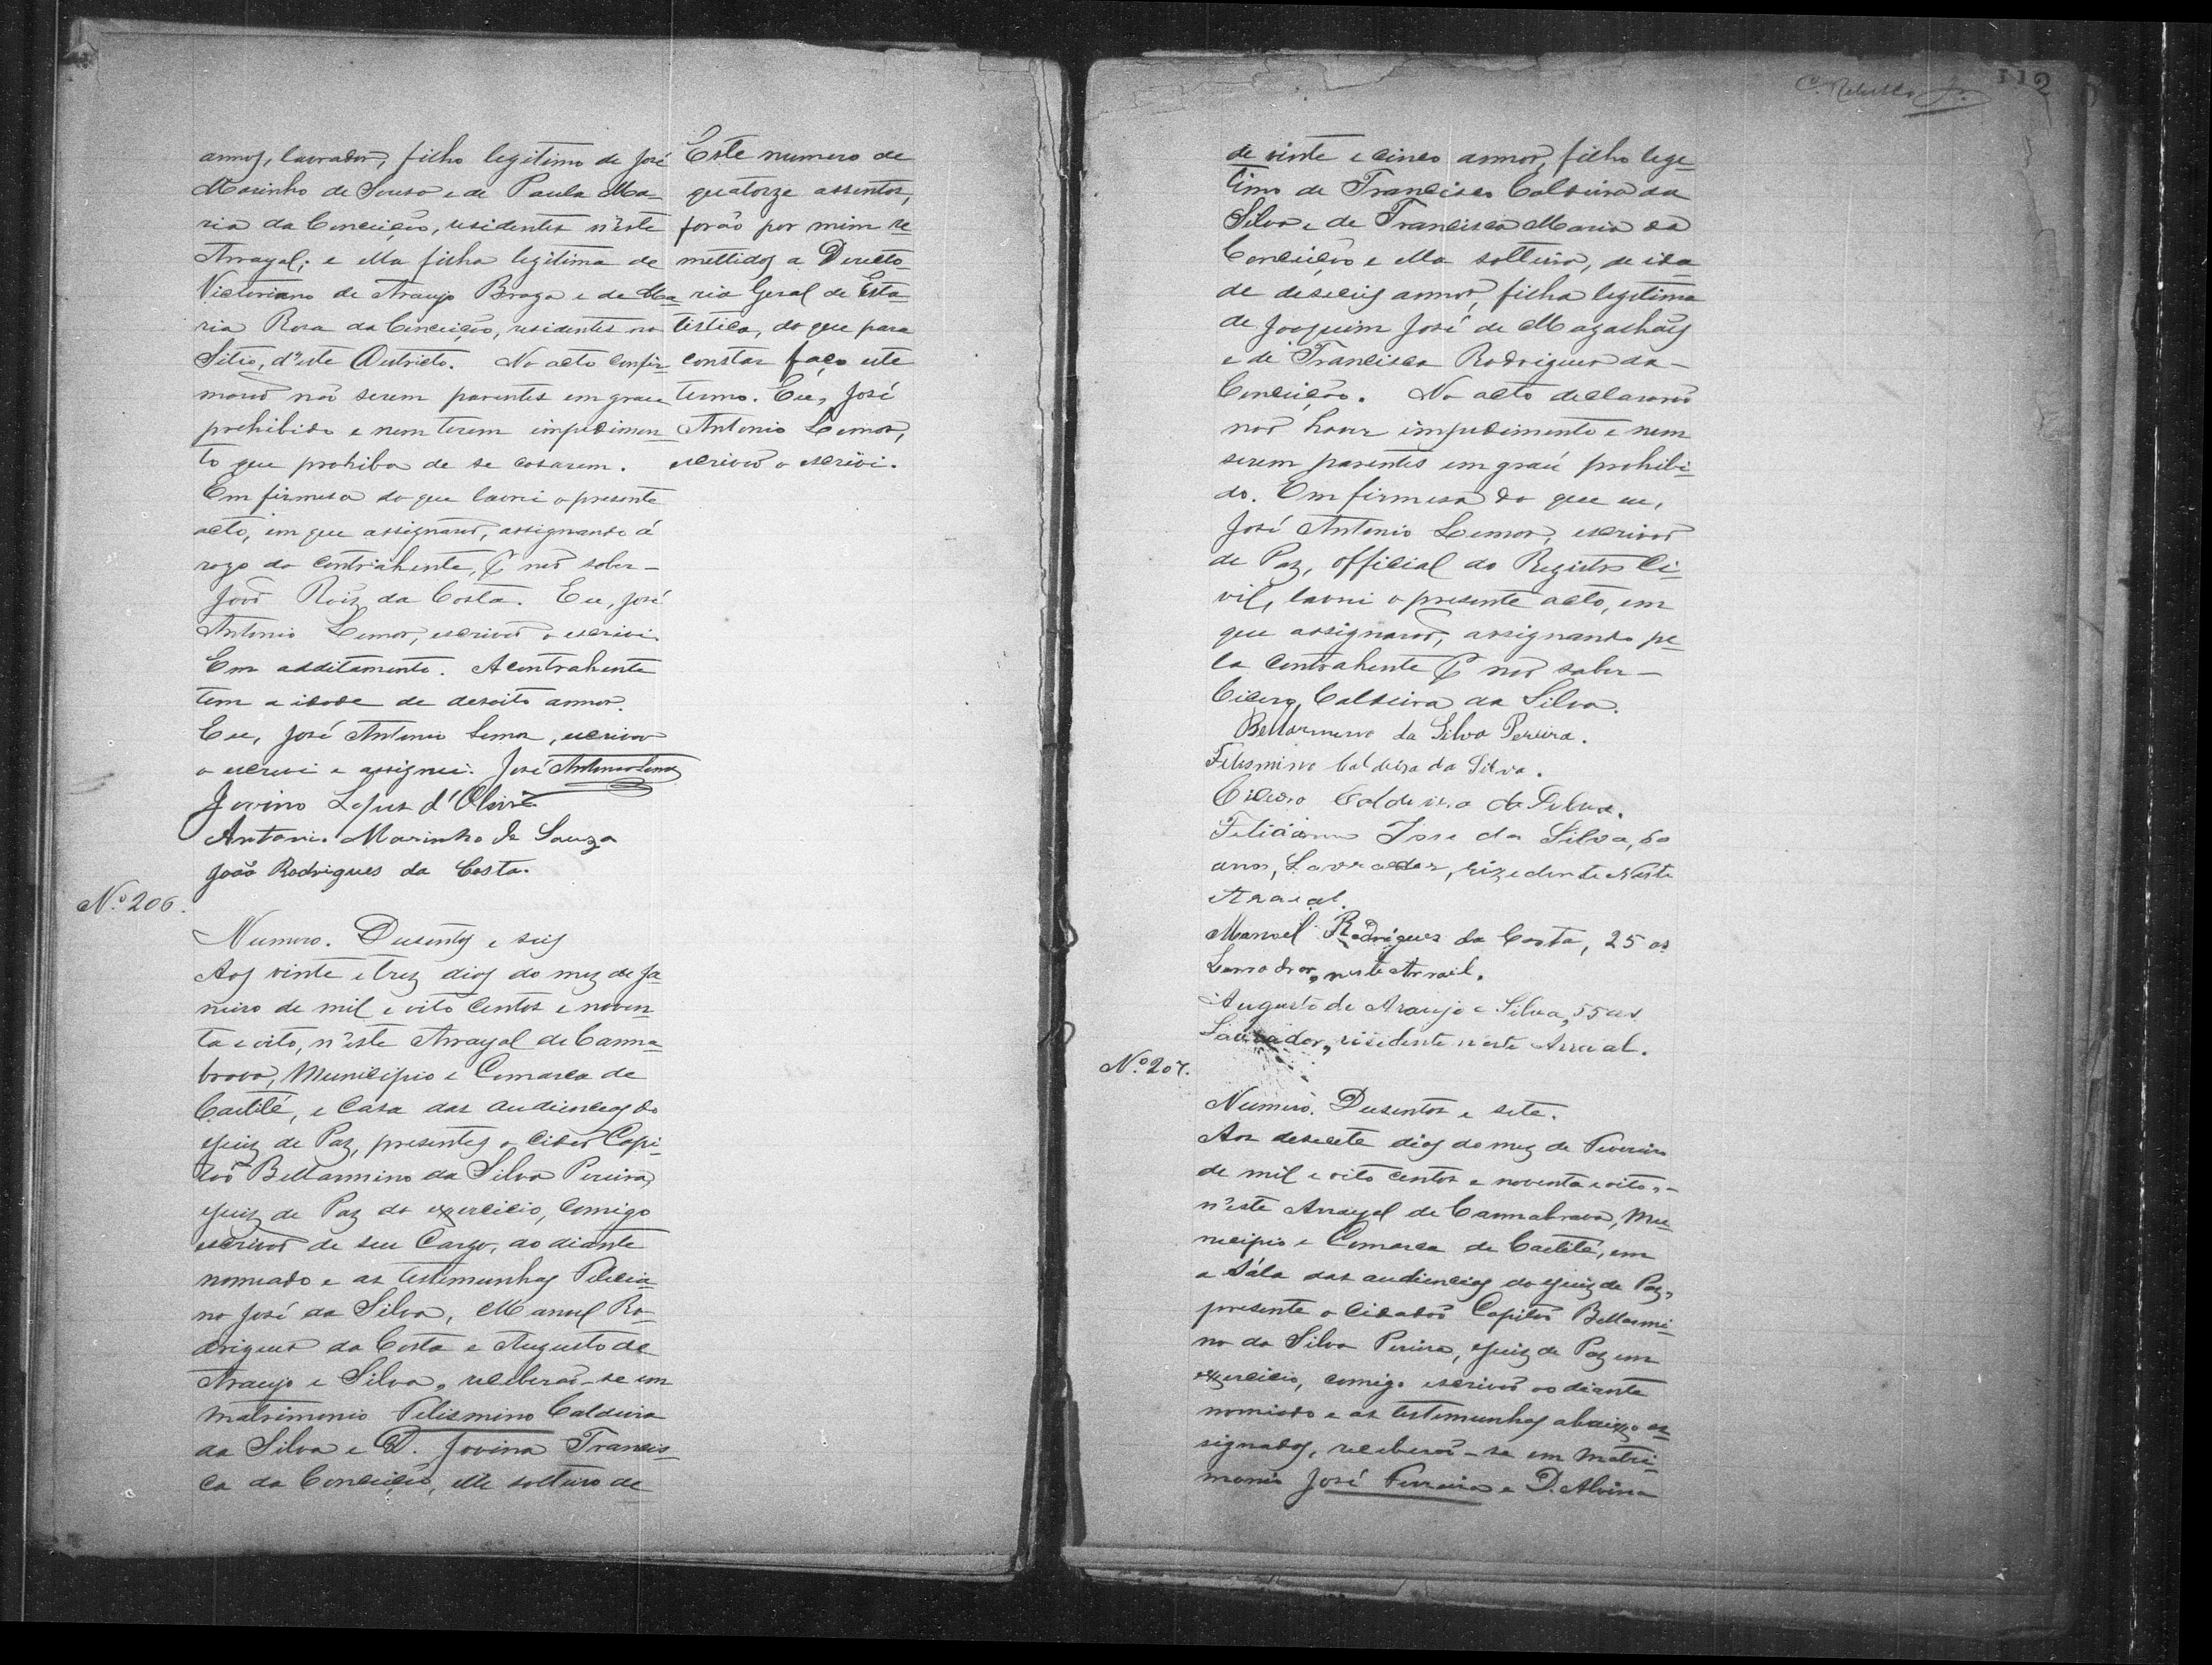 annos, lavrador, filho legitimo de José
Marinho de Sousa e de Paula Ma-
ria da Conceição, residentes n'este
Arrayal; e ella filha legitima de
Victoriano de Araujo Braga e de Ma-
ria Rosa da Conceição, residentes no
Sitio, d'este Districto. No acto confir-
marão não serem parentes em grau
prohibido e nem terem impedimen-
to que prohiba de se casarem.
Em firmesa do que lavrei o presente
acto, em que assignarão, assignando á
rogo da contrahente, p. não saber -
João Roiz da Costa. Eu, José
Antonio Lemos, escrivão o escrivi.
Em additamento. A contrahente
tem a idade de desoito annos.
Eu, José Antonio Lemos, escrivão
o escrevi e assignei. José Antonio Lemos
Jovino Lopes d'Olivra
Antonio Marinho de Souza
João Rodrigues da Costa.
Este numero de
quatorze assentos,
forão por mim re-
mettidos a Directo-
ria Geral de Esta-
tistica, do que para
constar faço este
termo. Eu, José
Antonio Lemos,
escrivão o escrivi.
Nº 206.
Numero. Dusentos e seis
Aos vinte e trez dias do mez de Ja-
neiro de mil e oito centos e noven-
ta e oito, n'este Arrayal de Canna-
brava, Municipio e Comarca de
Caetité, e Casa das audiencias do
Juiz de Paz, presentes o Cidão Capi-
tão Bellarmino da Silva Pereira,
Juiz de Paz do exercicio, comigo
escrivão de seu Cargo, ao diante
nomeado e as testemunhas Felicia-
no José da Silva, Manoel Ro-
drigues da Costa e Augusto de
Araujo e Silva, receberão-se em
matrimonio Felismino Caldeira
da Silva e D. Jovina Francis-
ca da Conceição, elle solteiro de
112
de vinte e cinco annos, filho lege-
timo de Francisco Caldeira da
Silva e de Francisca Maria da
Conceição e ella solteira, de ida-
de deseseis annos, filha legitima
de Joaquim José de Magalhães
e de Francisca Rodrigues da -
Conceição. No acto declararão
não haver impedimento e nem
serem parentes em graú prohibi-
do. Em firmesa do que eu,
José Antonio Lemos, escrivão
de Paz, official do Registro Ci-
vil, lavrei o presente acto, em
que assignarão, assignando pe-
la contrahente p. não saber -
Cicero Caldeira da Silva.
Bellarmino da Silva Pereira.
Felismino Caldeira da Silva.
Cicero Caldeira da Silva.
Feliciano Jose da Silva, 60
anos, Lavrador, rizedente Neste
Araial.
Manoel Rodrigues da Costa, 25 as
Lavrador, neste Arraial.
Augusto de Araujo e Silva, 55 as
Lavrador, risidente neste Arraial.
Nº 207.
Numero. Dusentos e sete.
Aos desesete dias do mez de Fevereiro
de mil e oito centos e noventa e oito, -
n'este Arrayal de Cannabrava, Mu-
nicipio e Comarca de Caetité, em
a Sála das audiencias do Juiz de Paz,
presente o Cidadão Capitão Bellarmi-
no da Silva Pereira, Juiz de Paz em
exercicio, comigo escrivão ao diante
nomeado e as testemunhas abaixo as-
signados, receberão-se em matri-
monio José Ferreira e D. Alvina